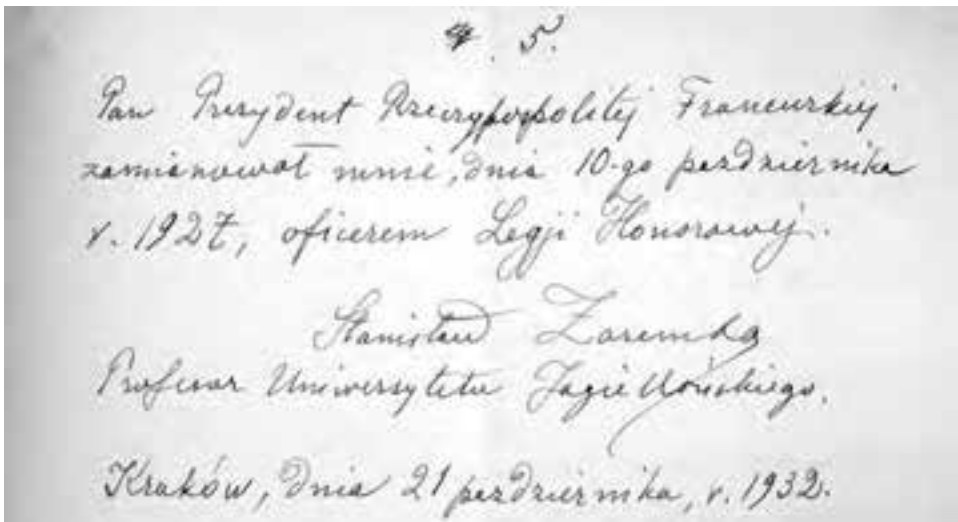 5.
Pan Prezydent Rzeczypospolitej Francuskiej
zamianował mnie, dnia 10-go października
r. 1927, oficerem Legji Honorowej.
Stanisław Zaremba
Profesor Uniwersytetu Jagiellońskiego.
Kraków, dnia 21 października, r. 1932.